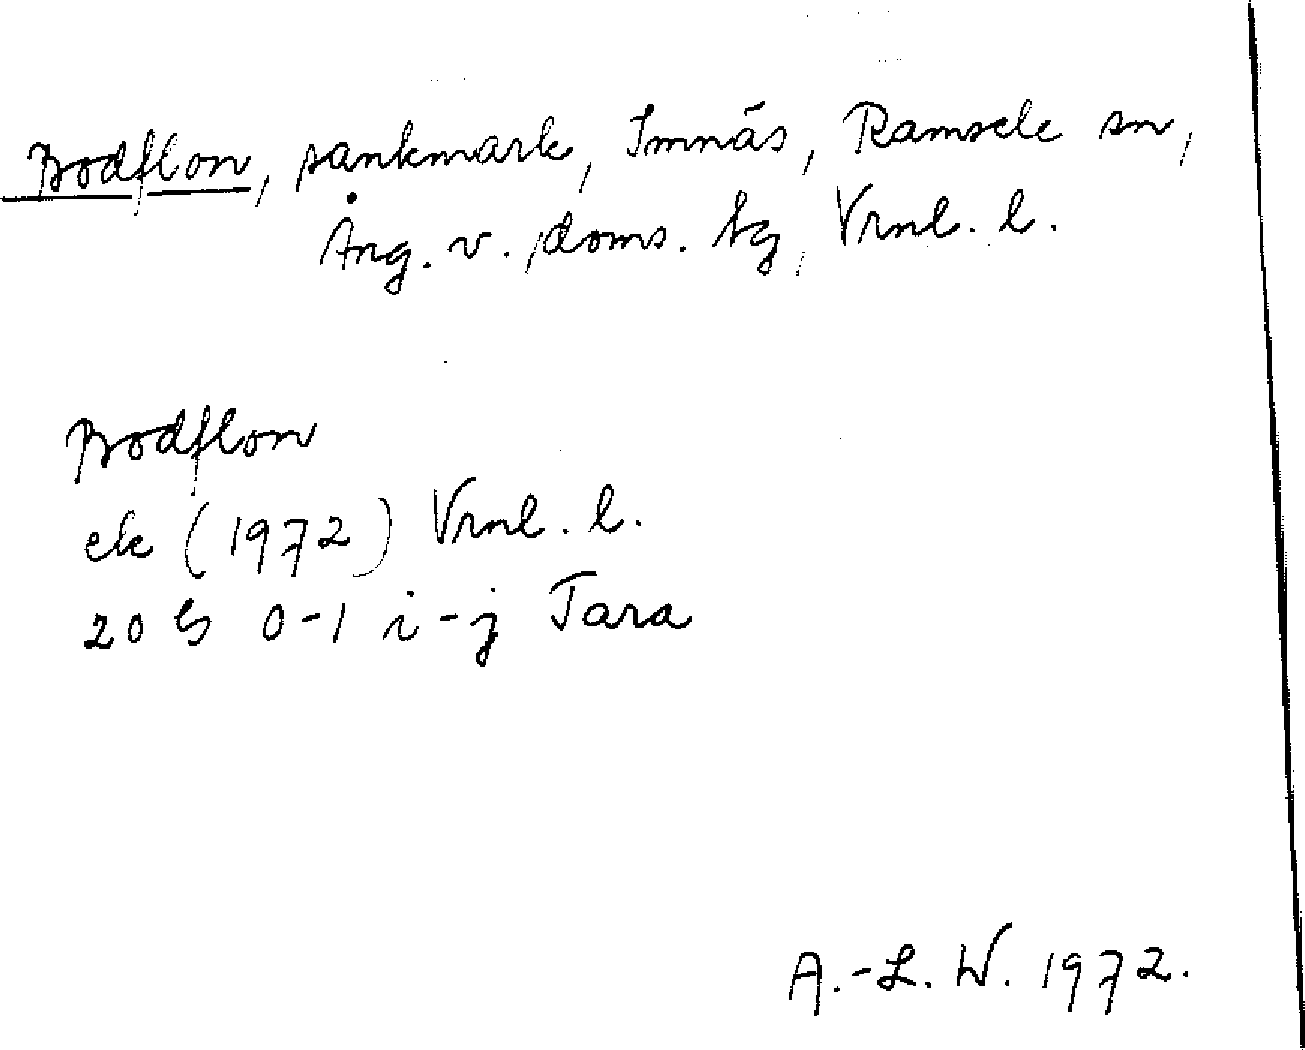 Bodflon, sankmark, Imnäs, Ramsele sn,
Ång. v. doms. tg, Vrnl. l.
Bodflon
ek (1972) Vrnl. l.
20 G 0-1 i-j Tara
A.-L. W. 1972.